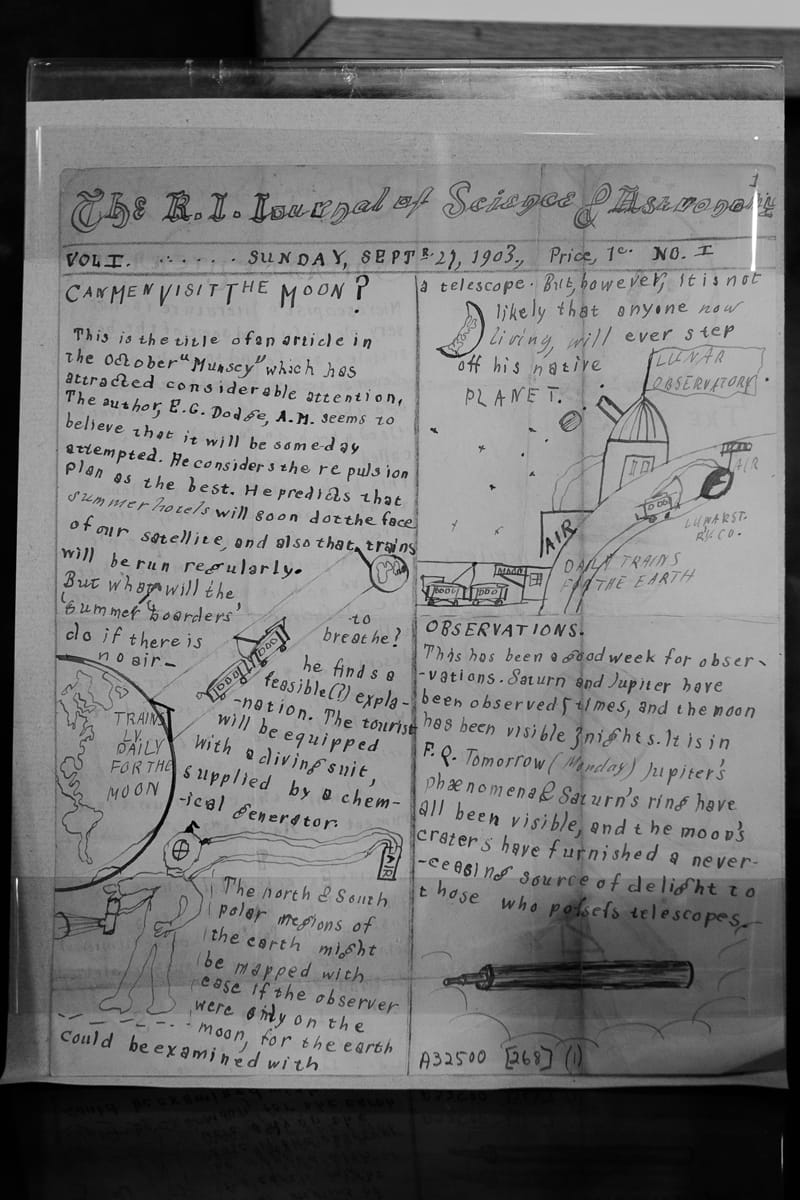 1
The R.I. Journal of Science & Astronomy
VOL I. ...... SUNDAY, SEPT. 27, 1903., Price, 1c. NO. I
CAN MEN VISIT THE MOON?
This is the title of an article in
the October "Munsey" which has
attracted considerable attention,
The author, E.G. Dodge, A.M. seems to
believe that it will be some day
attempted. He considers the repulsion
plan as the best. He predicts that
summer hotels will soon dot the face
of our satellite, and also that trains
will be run regularly.
But what will the
'summer boarders'
do if there is
no air—
to
breathe?
he finds a
feasible(?) expla-
-nation. The tourist
will be equipped
with a diving suit,
supplied by a chem-
-ical generator.
TRAINS
LV.
DAILY
FOR THE
MOON
AIR
The north & South
polar regions of
the earth might
be mapped with
ease if the observer
were only on the
moon, for the earth
could be examined with
a telescope. But, however, it is not
likely that anyone now
living, will ever step
off his native
PLANET.
LUNAR
OBSERVATORY.
AIR
LUNAR ST.
RY. CO.
AIR
DAILY TRAINS
FOR THE EARTH
OBSERVATIONS.
This has been a good week for obser-
-vations. Saturn and Jupiter have
been observed 5 times, and the moon
has been visible 3 nights. It is in
F. Q. Tomorrow (Monday) Jupiter's
phænomena & Saturn's ring have
all been visible, and the moon's
craters have furnished a never-
-ceasing source of delight to
those who posses telescopes.
A32500 [268] (1)